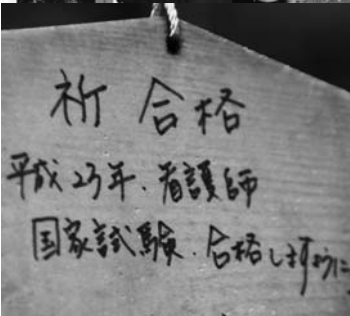 祈 合格
平成23年、看護師
国家試験、合格しますように